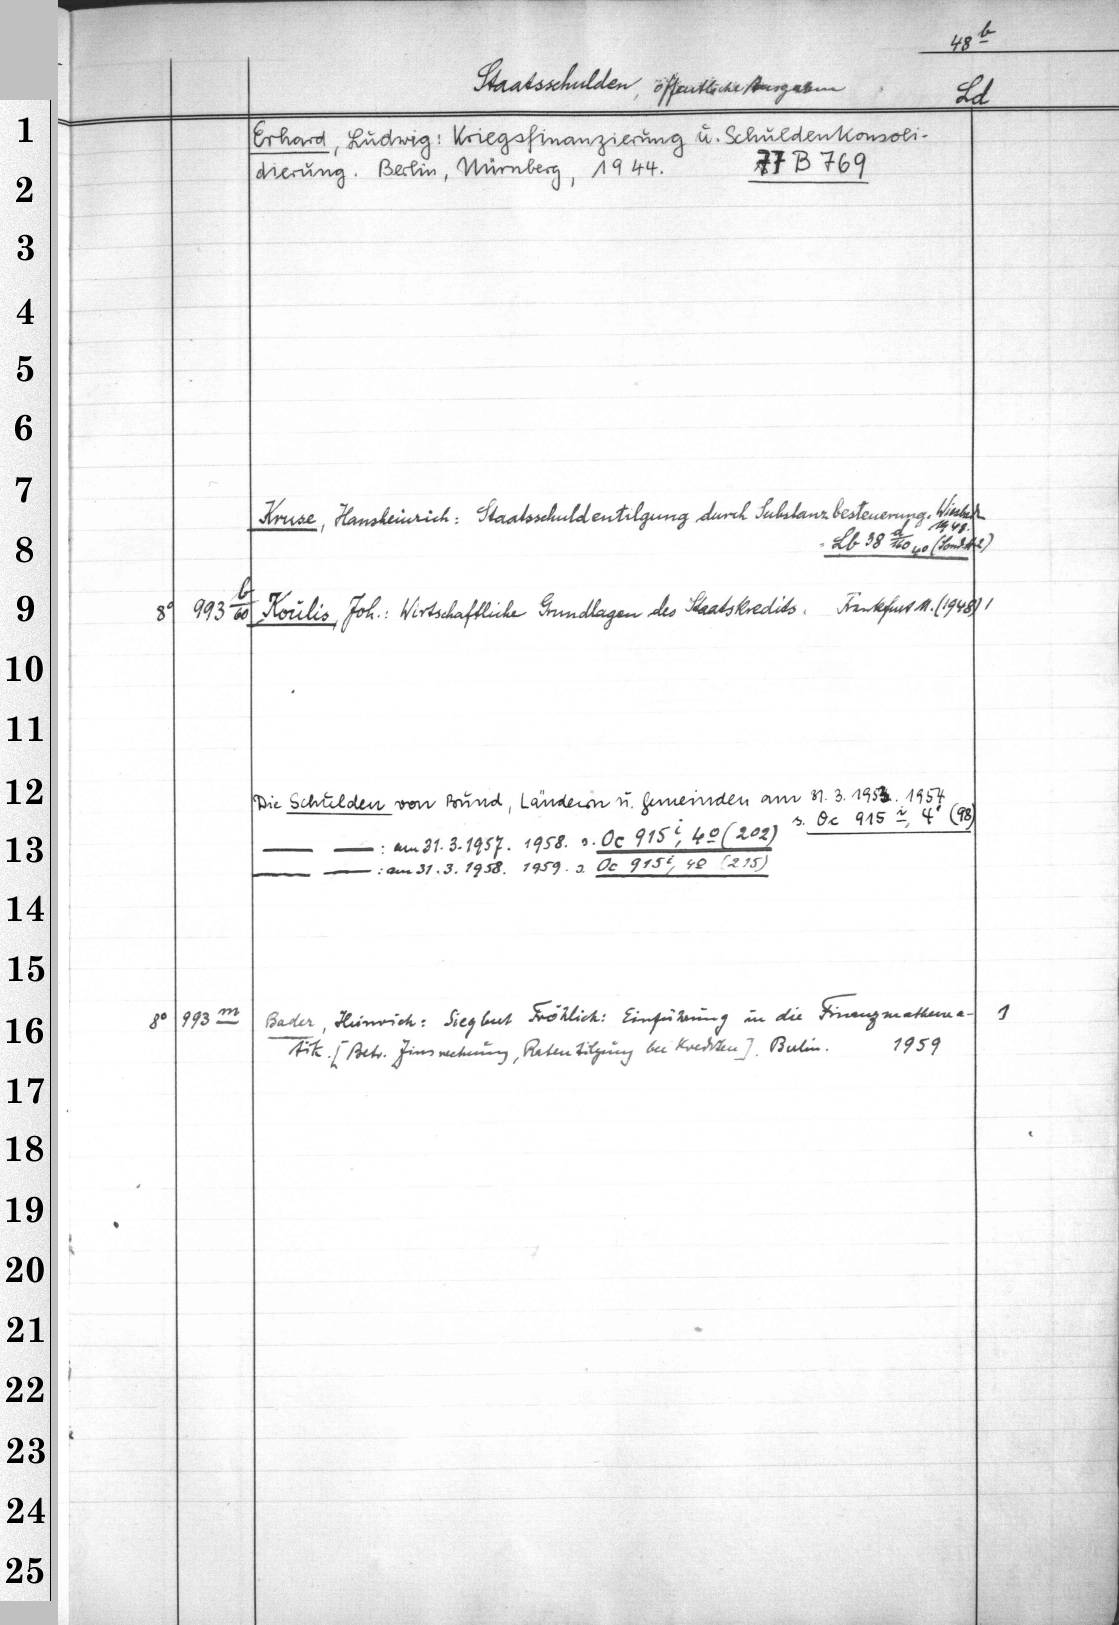 48 b
Staatsschulden, öffentliche Ausgaben Ld
1
Erhard, Ludwig: Kriegsfinanzierung u. Schuldenkonsoli-
2
dierung. Berlin, Nürnberg, 1944. 77 B 769
3
4
5
6
7
Kruse, Hansheinrich: Staatsschuldentilgung durch Substanzbesteuerung.
1948.
8
Lb 38 d/160
9
8° 993 b/60 Koulis, Joh.: Wirtschaftliche Grundlagen des Staatskredits. Frankfurt M. (1948) 1
10
11
12
Die Schulden von Bund, Ländern u. Gemeinden am 31. 3. 1953. 1954
s. Oc 915 i, 4° (98)
13
— — : am 31.3.1957. 1958. s. Oc 915 i, 4° (202)
— — : am 31.3.1958. 1959. s. Oc 915 i, 4° (215)
14
15
16
8° 993 m Bader, Heinrich: Siegbert Fröhlich: Einführung in die Finanzmathema- 1
tik. [Betr. Zinsrechnung, Ratentilgung bei Krediten]. Berlin. 1959
17
18
19
20
21
22
23
24
25